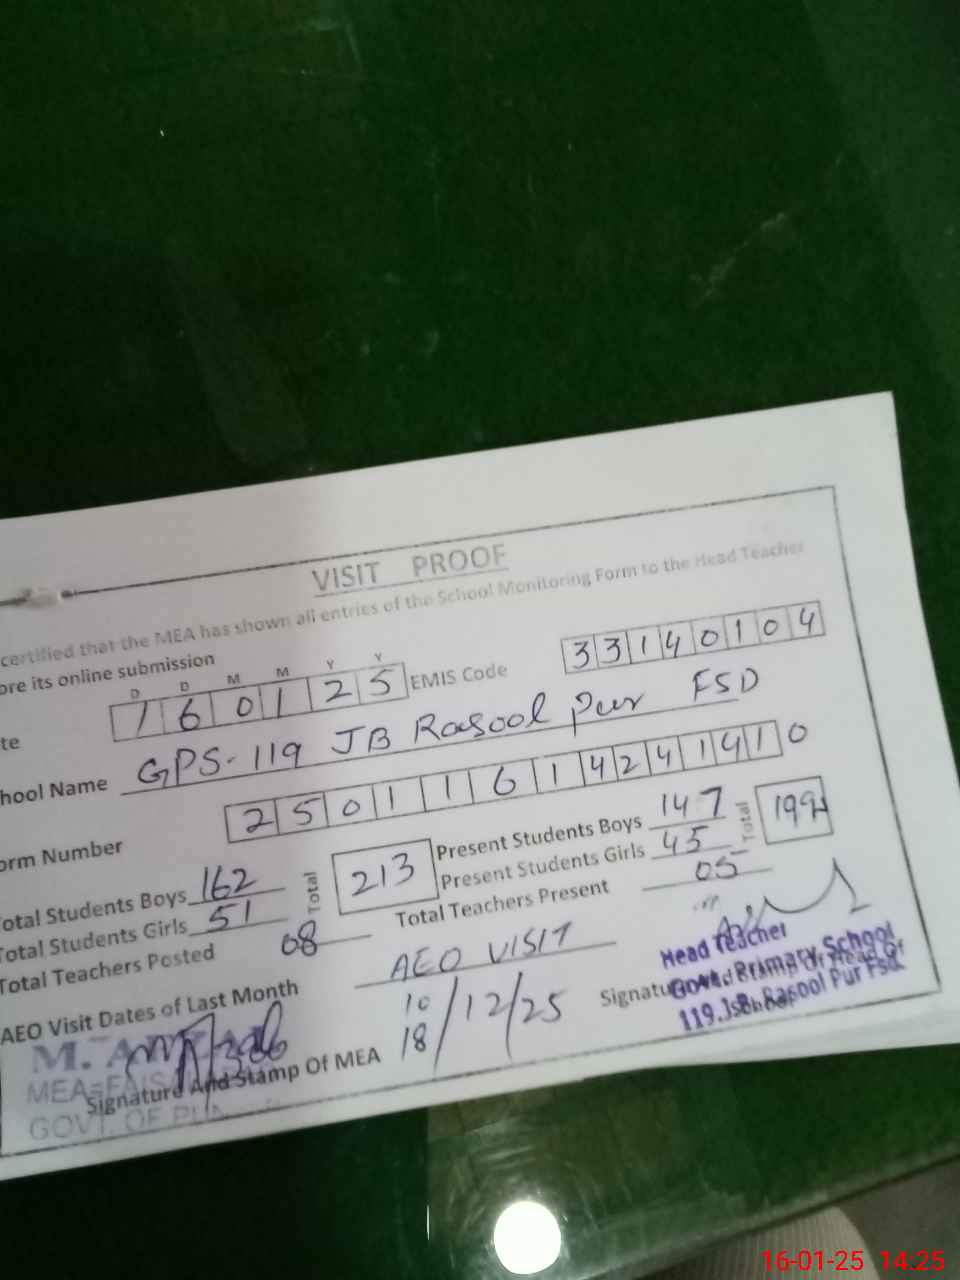 VISIT PROOF
certified that the MEA has shown all entries of the School Monitoring Form to the Head Teacher
ore its online submission
D D M M Y Y
te 1 6 0 1 2 5 EMIS Code 3 3 1 4 0 1 0 4
hool Name GPS-119 JB Rasool Pur FSD
orm Number 2 5 0 1 1 6 1 4 2 4 1 4 1 0
otal Students Boys 162 Total 213 Present Students Boys 147 Total 192
Total Students Girls 51 Present Students Girls 45
Total Teachers Posted 08 Total Teachers Present 05
AEO Visit Dates of Last Month AEO VISIT
10
18 /12/25
Signature And Stamp Of MEA
M. AFZAL
MEA
GOVT. OF
Head Teacher
Govt. Primary School
119.J.B. Rasool Pur Fsd.
16-01-25 14:25